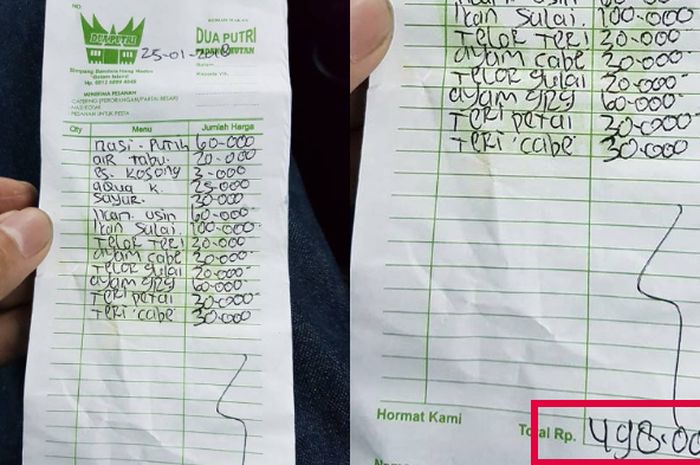 NO:
DUA PUTRI
25-01-2018
RUMAH MAKAN
DUA PUTRI
Simpang Bandara Hang Nadim
Batam Island
Batam
Kepada Yth.
MENERIMA PESANAN
CATERING (PERORANGAN/PARTAI BESAR)
NASI KOTAK
PESANAN UNTUK PESTA
Qty Menu Jumlah Harga
nasi. putih 60-000
air tabu. 20-000
es. kosong 3-000
aqua k. 25-000
sayur. 30-000
Ikan. asin 60-000
Ikan sulai. 100-000
Telor Teri 20-000
ayam cabe 30-000
Telor gulai 20-000
ayam grg 60-000
Teri petai 30-000
Teri cabe 30-000
Ikan sulai. 100-000
Telor Teri 20-000
ayam cabe 30-000
Telor gulai 20-000
ayam grg 60-000
Teri petai 30-000
Teri cabe 30-000
Hormat Kami
Total Rp. 498.00